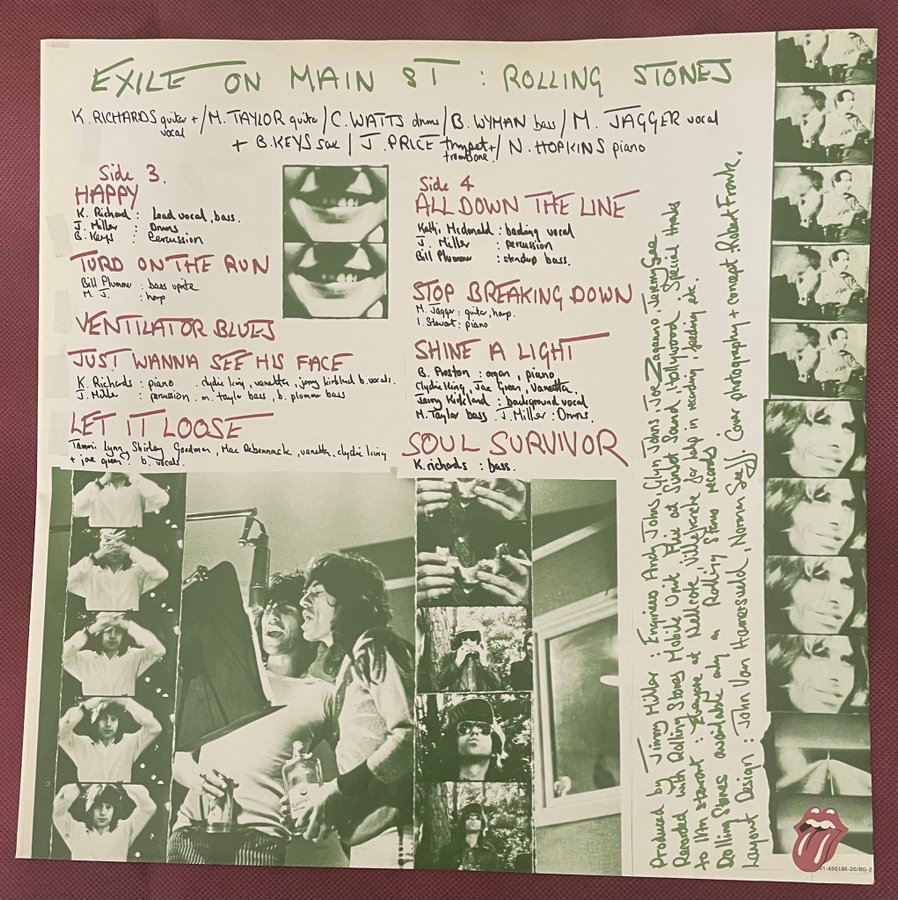 EXILE ON MAIN ST : ROLLING STONES
K. RICHARDS guitar + vocal / M. TAYLOR guitar / C. WATTS drums / B. WYMAN bass / M. JAGGER vocal
+ B. KEYS sax / J. PRICE trumpet + trombone / N. HOPKINS piano
Side 3.
HAPPY
K. Richard : Lead vocal, bass.
J. Miller : Drums
B. Keys : Percussion
TURD ON THE RUN
Bill Plummer : bass uprite
M. J. : harp
VENTILATOR BLUES
JUST WANNA SEE HIS FACE
K. Richards : piano clydie king, vanetta, jerry kirkland b. vocals.
J. Miller : percussion, m. taylor bass, b. plummer bass
LET IT LOOSE
Tammi Lynn, Shirley Goodman, Mac Rebennack, vanetta, clydie king
+ joe green : b. vocals.
Side 4
ALL DOWN THE LINE
Kathi Mcdonald : backing vocal
J. Miller : percussion
Bill Plummer : standup bass.
STOP BREAKING DOWN
M. Jagger : guitar, harp.
I. Stewart : piano
SHINE A LIGHT
B. Preston : organ, piano
Clydie King, Joe Green, Vanetta
Jerry Kirkland : background vocal
M. Taylor bass J. Miller : Drums
SOUL SURVIVOR
K. richards : bass.
Produced by Jimmy Miller : Engineers Andy Johns, Glyn Johns, Joe Zagarino, Jeremy Gee
Recorded with Rolling Stones Mobile Unit Mix at Sunset Sound, Hollywood. Special thanks
to Ian stewart : Everyone at Nellcote Villefranche for help in recording, feeding etc.
Rolling Stones available only on Rolling Stones records
Layout Design : John Van Hamersveld, Norman Seeff Cover photography + concept Robert Frank.